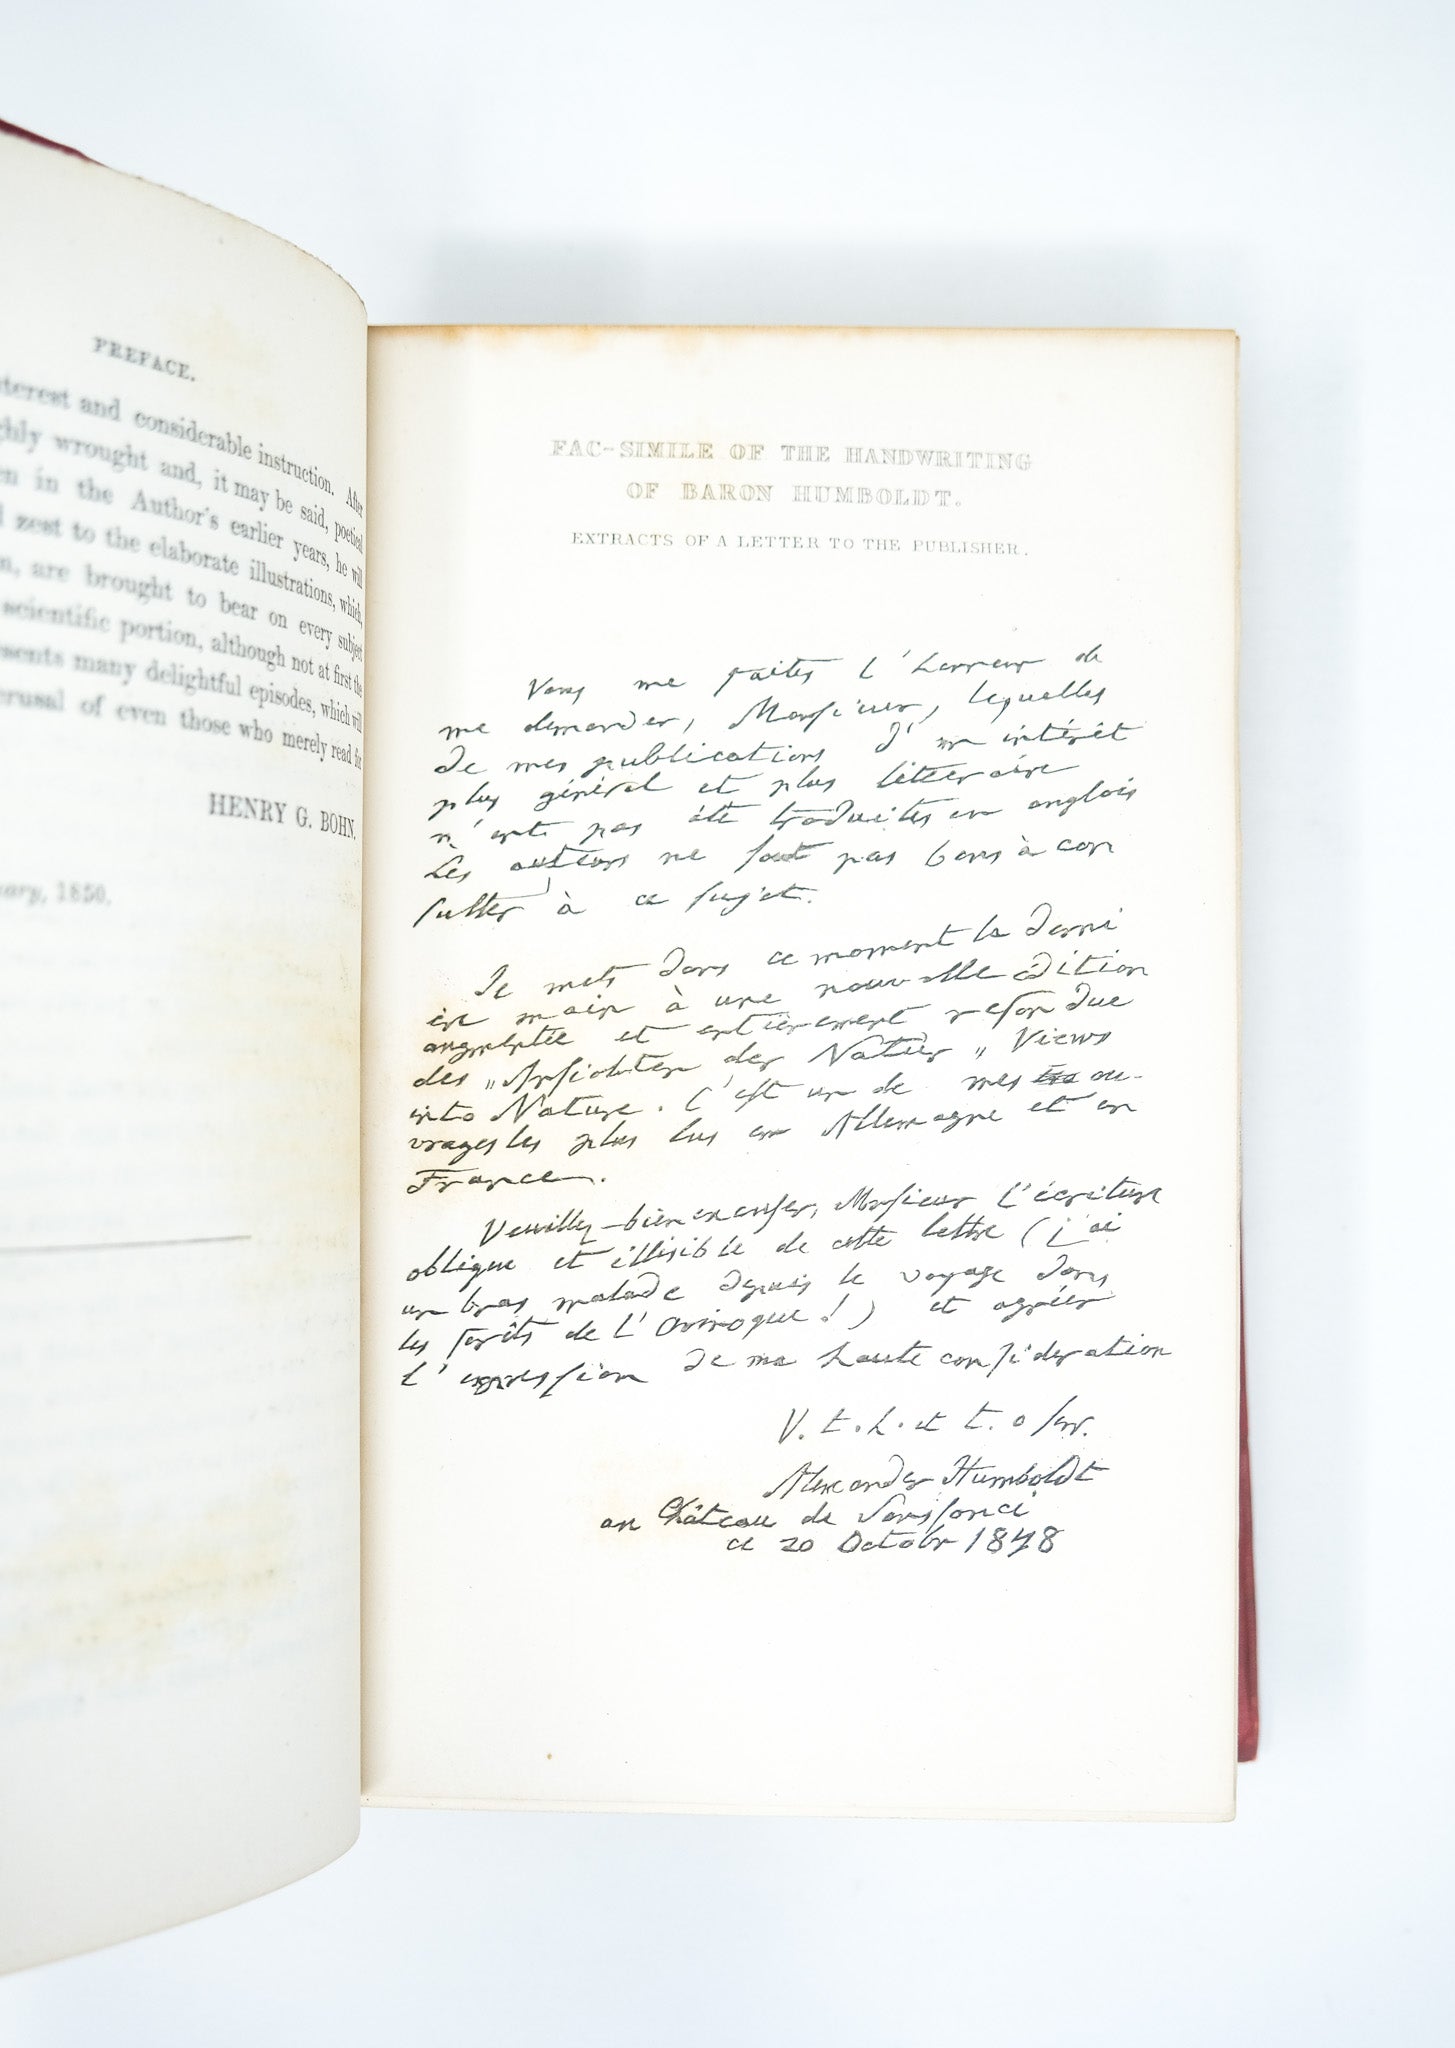 PREFACE.
terest and considerable instruction. After
ghly wrought and, it may be said, poetical
en in the Author's earlier years, he will
zest to the elaborate illustrations, which,
n, are brought to bear on every subject
scientific portion, although not at first the
sents many delightful episodes, which will
erusal of even those who merely read for
HENRY G. BOHN.
ary, 1850.
FAC-SIMILE OF THE HANDWRITING
OF BARON HUMBOLDT.
EXTRACTS OF A LETTER TO THE PUBLISHER.
Vous me faites l'honneur de
me demander, Monsieur, lequelles
de mes publications d'un intérêt
plus général et plus litteraire
n'ont pas été traduites en anglois
Les auteurs ne sont pas bons à con
sulter à ce sujet.
Je mets dans ce moment la derni
ère main à une nouvelle édition
augmentée et entièrement refondue
des „Ansichten der Natur„ Views
into Nature. C'est un de mes ou-
vrages les plus lus en Allemagne et en
France.
Veuillez-bien excuser, Monsieur l'écriture
oblique et illisible de cette lettre (j'ai
un bras malade depuis le voyage dans
les forêts de l'Orinoque!) et agréer
l'expression de ma haute consideration
V. t. h. et t. o serv.
Alexander Humboldt
au Château de Sanssouci
ce 20 Octobr 1848